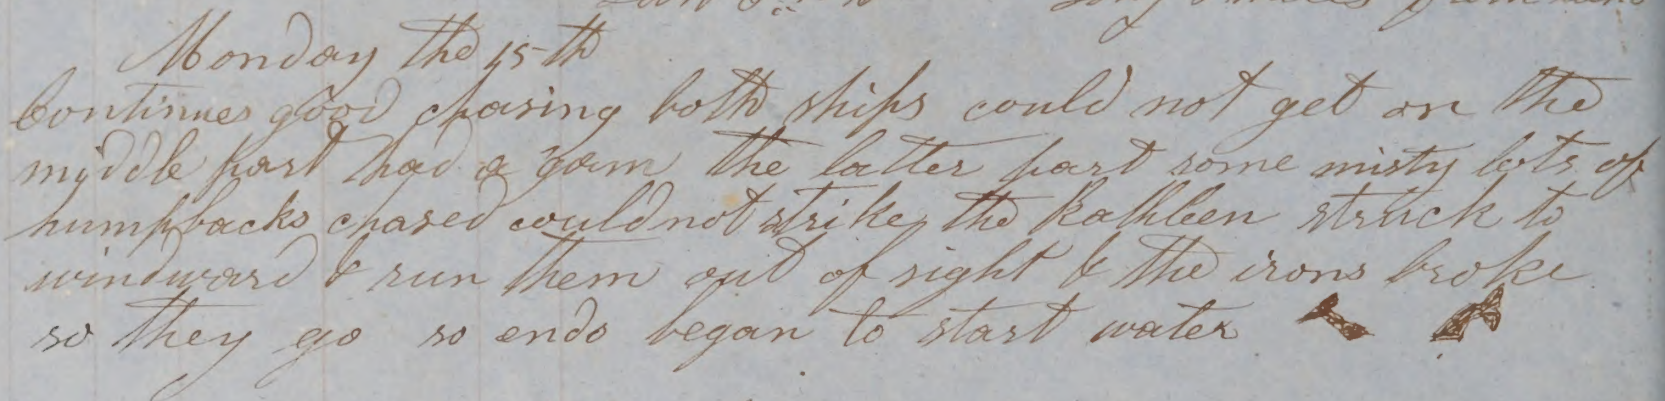 Monday the 15th
Continues good chasing both ships could not get on the
middle part had a gam the latter part some misty lots of
humpbacks chased could not strike the Kathleen struck to
windward & run them out of sight & the irons broke
so they go so ends began to start water